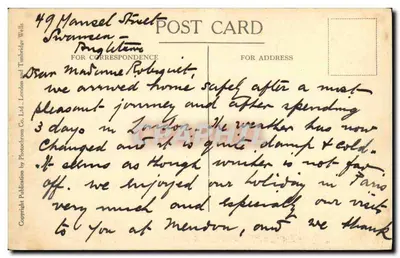 49 Mansel Street
Swansea -
POST CARD
FOR CORRESPONDENCE
FOR ADDRESS
Copyright Publication by Photochrom Co. Ltd., London and Tunbridge Wells
Dear Madame Robiquet,
we arrived home safely after a most
pleasant journey and after spending
3 days in The weather has now
changed and it is quite damp & cold.
It seems as though winter is not far
off. we enjoyed our holiday in Paris
very much and especially our visit
to you at Meudon, and we thank